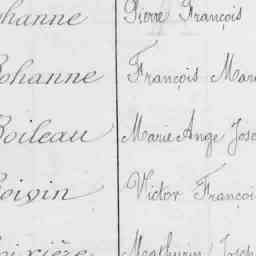 ohanne Pierre François
Bohanne François Mar
Boileau Marie Ange Jose
Boivin Victor Françoi
oixière Mathurin Josep